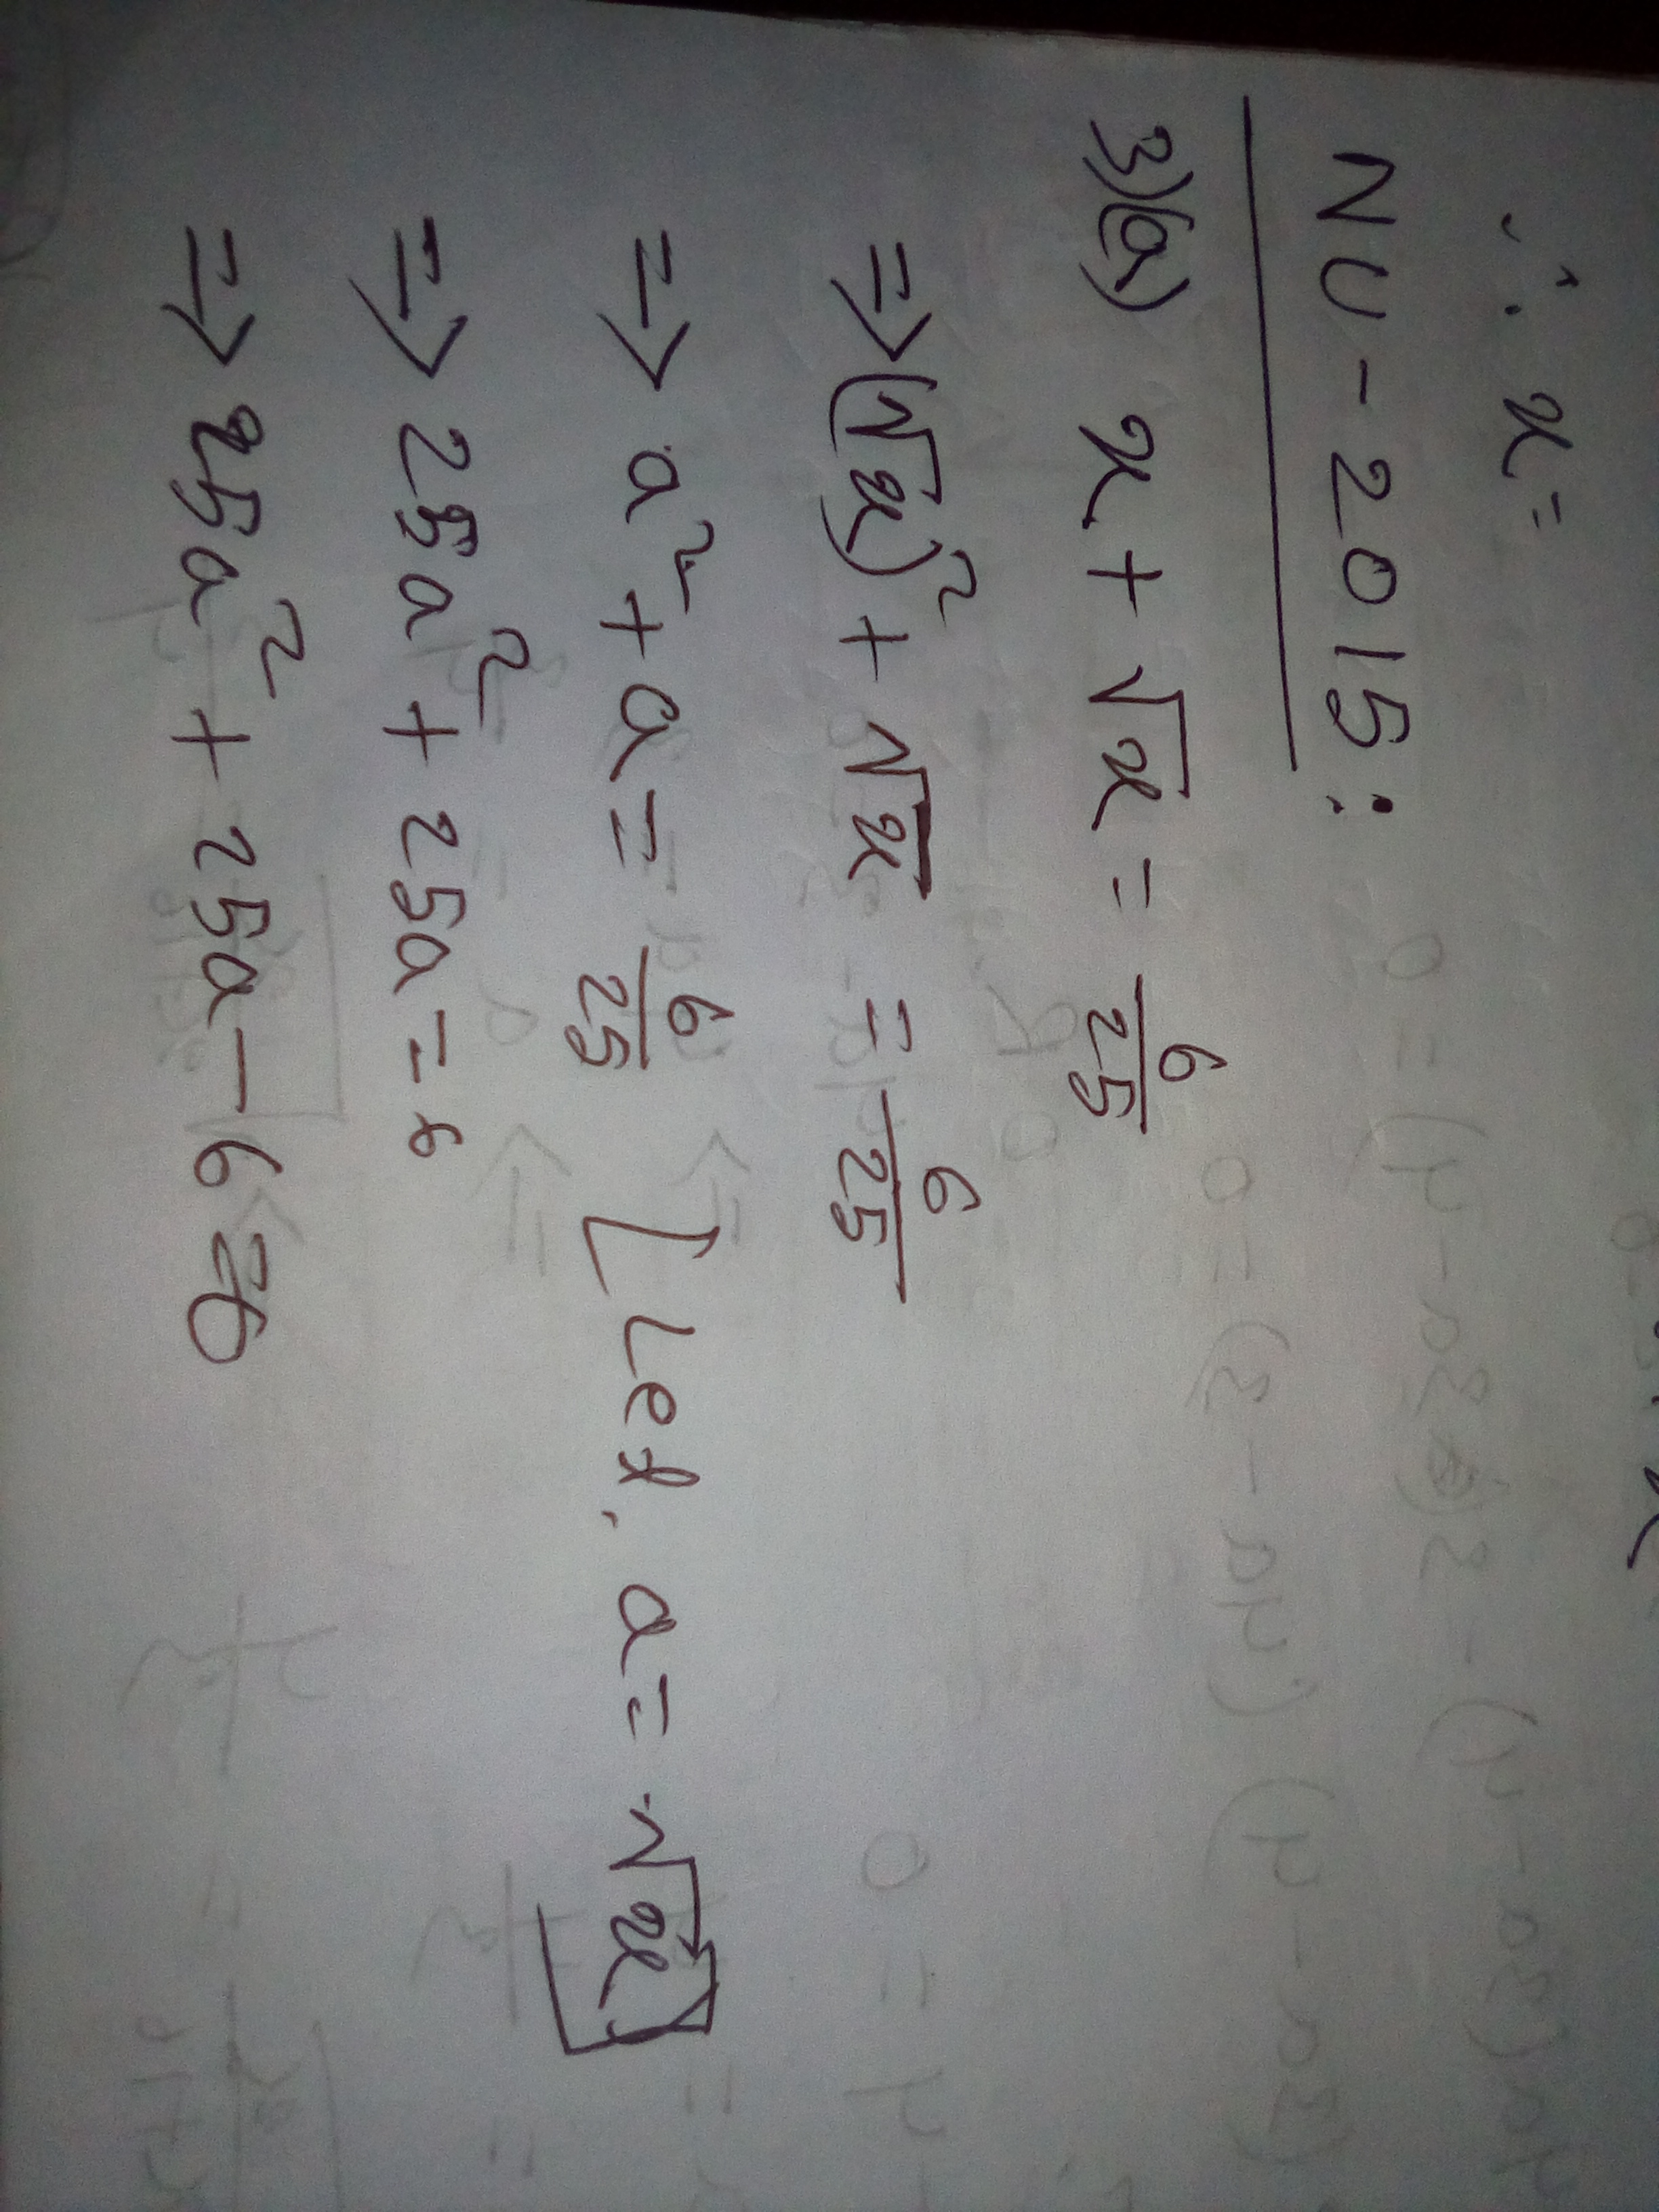 ∴ x =
NU-2015:
3)(a) x + √x = 6/25
⇒ (√x)² + √x = 6/25
⇒ a² + a = 6/25 [Let, a = √x]
⇒ 25a² + 25a = 6
⇒ 25a² + 25a - 6 = 0